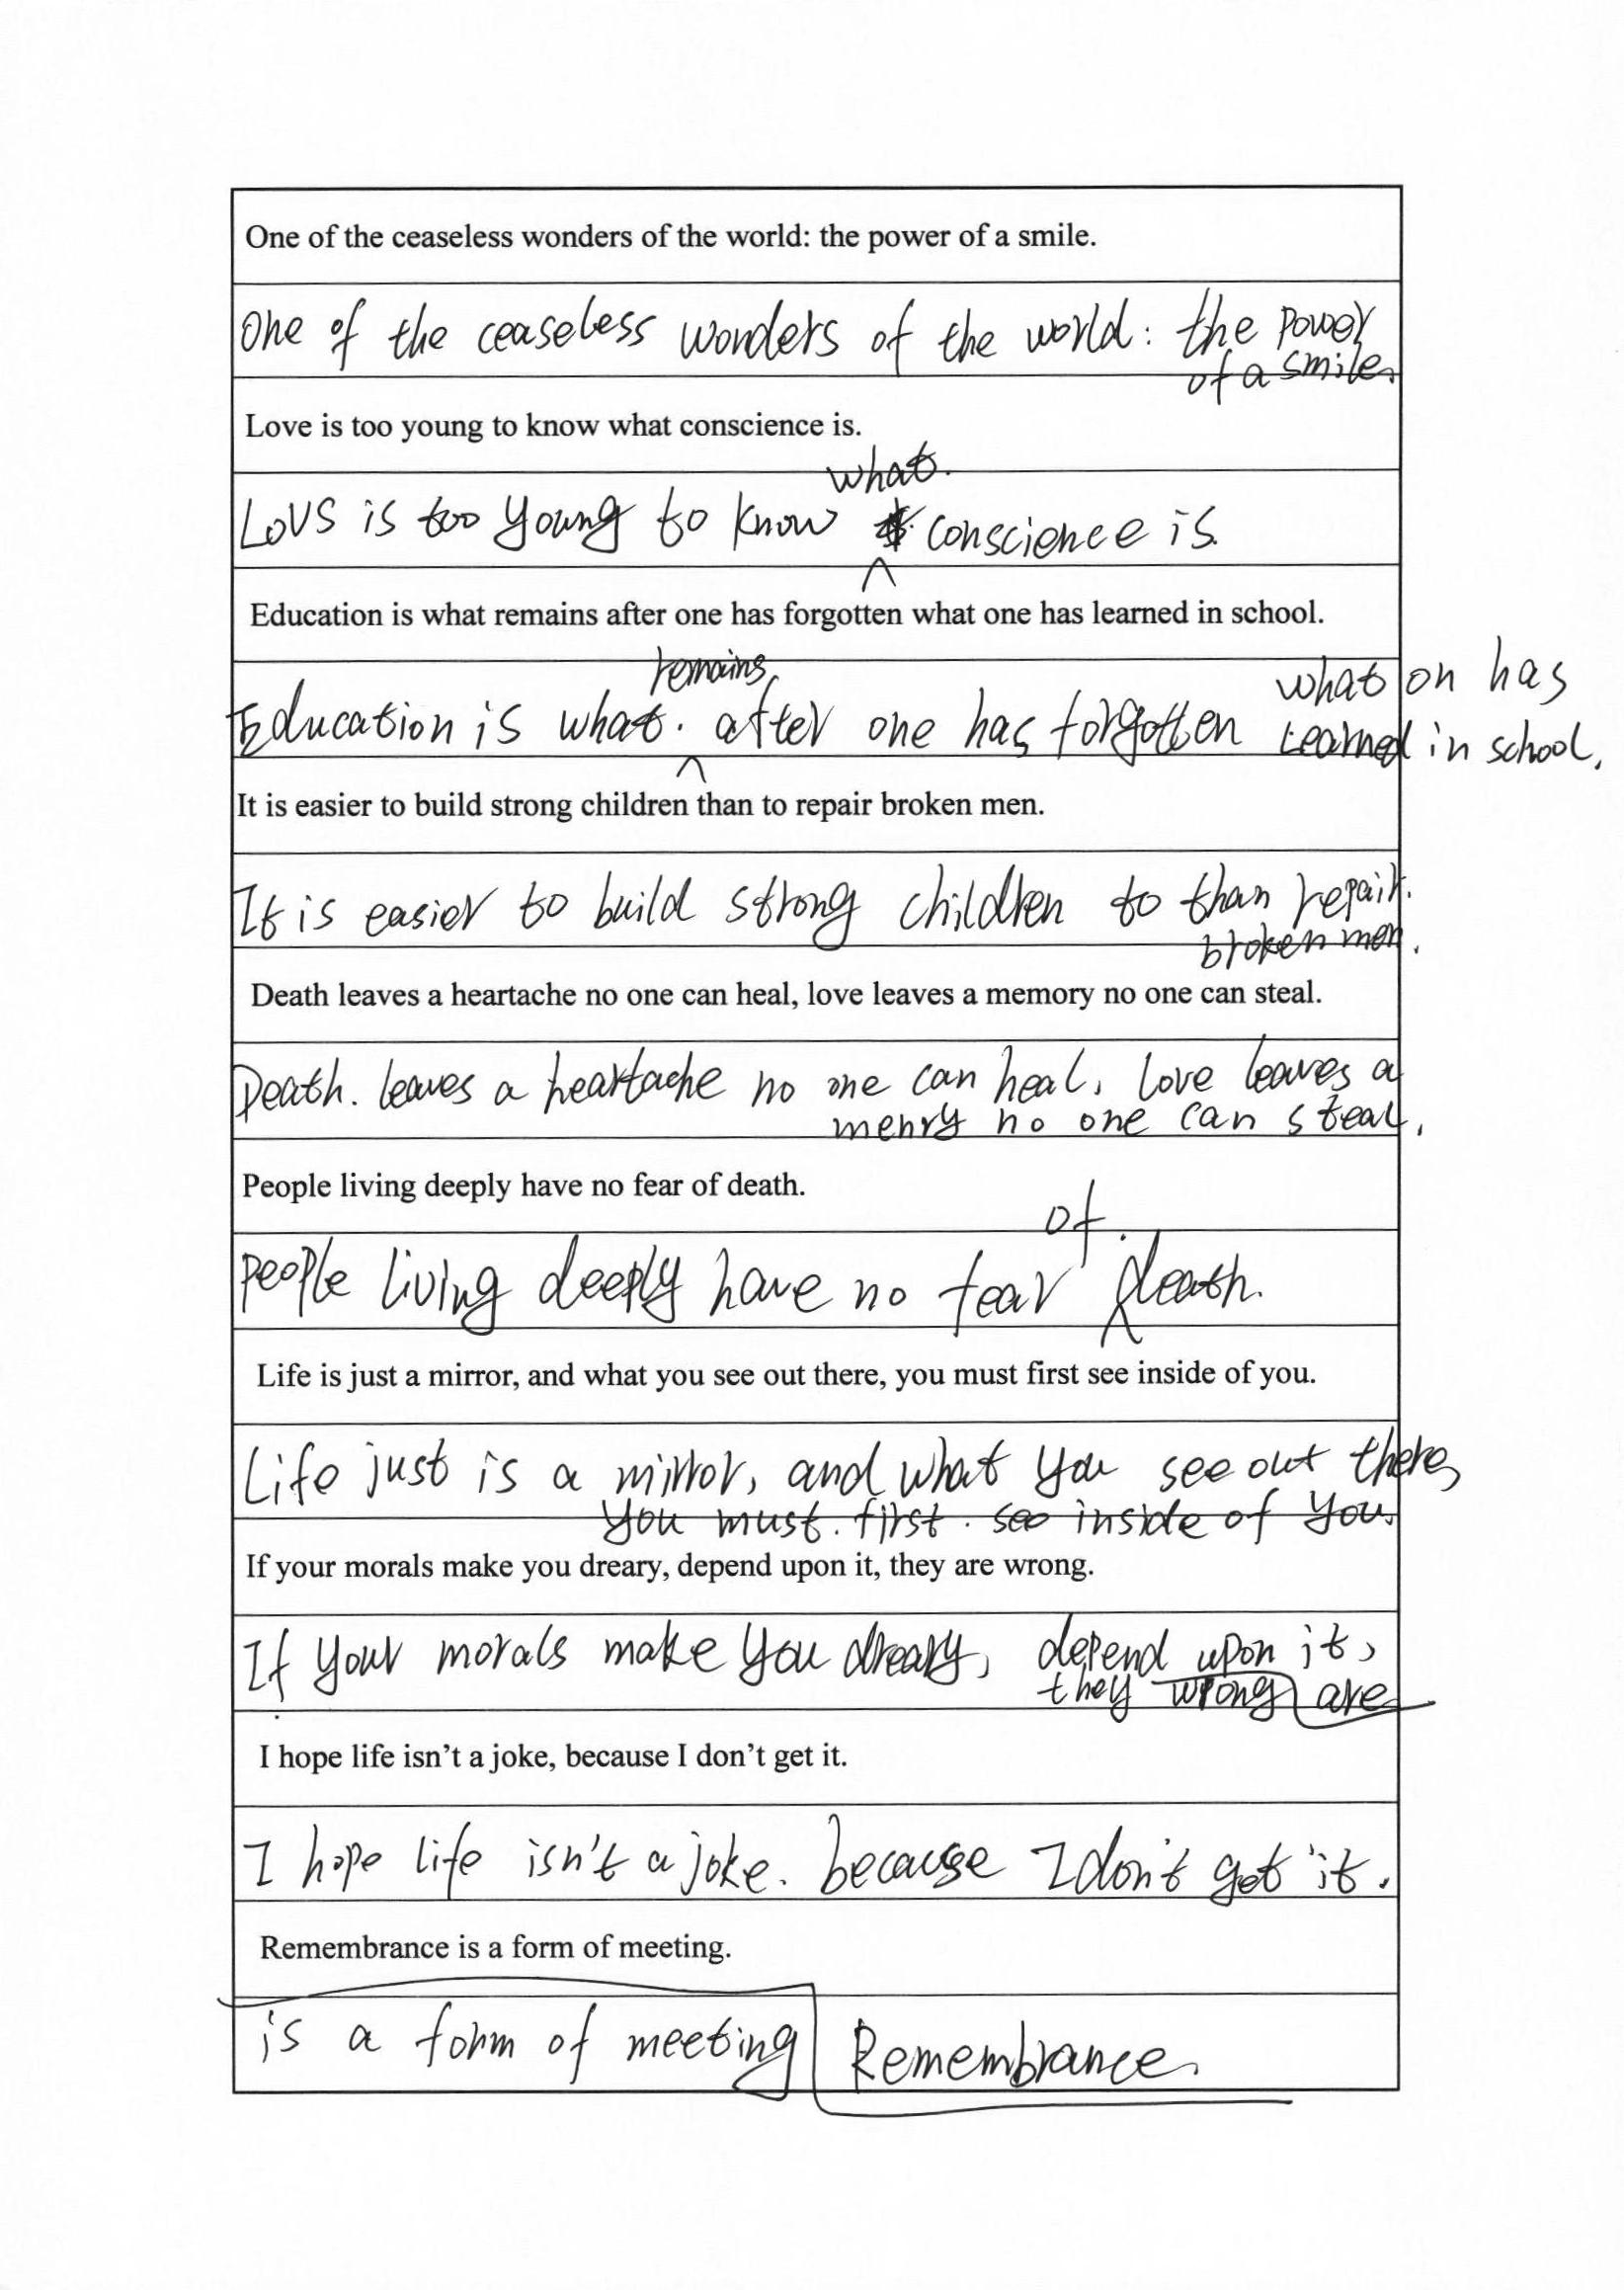 One of the ceaseless wonders of the world: the power of a smile.
One of the ceaseless wonders of the world: the power
of a smile.
Love is too young to know what conscience is.
what.
Lovs is too young to know conscience is.
Education is what remains after one has forgotten what one has learned in school.
remains
what on has
Education is what. after one has forgotten learned in school.
It is easier to build strong children than to repair broken men.
It is easier to build strong children to than repair.
broken men.
Death leaves a heartache no one can heal, love leaves a memory no one can steal.
Death. leaves a heartache no one can heal, love leaves a
menry no one can steal.
People living deeply have no fear of death.
of
People living deeply have no fear death.
Life is just a mirror, and what you see out there, you must first see inside of you.
Life just is a mirror, and what you see out there,
you must. first. see inside of you.
If your morals make you dreary, depend upon it, they are wrong.
If your morals make you dreary, depend upon it,
they wrong are
I hope life isn't a joke, because I don't get it.
I hope life isn't a joke. because I don't get it.
Remembrance is a form of meeting.
is a form of meeting Remembrance.